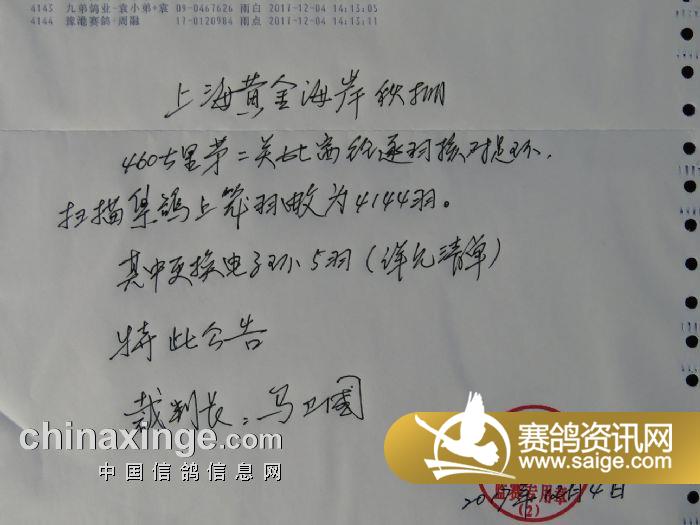 4143 九弟鸽业-袁小弟+袁 09-0467626 雨白 2017-12-04 14:13:05
4144 豫池赛鸽+周融 17-0120984 雨点 2017-12-04 14:13:11
上海黄金海岸秋棚
460公里第二关比赛经逐羽核对足环、
扫描集鸽上笼羽数为4144羽。
其中更换电子环5羽(详见清单)
特此公告
裁判长：马卫国
chinaxinge.com
中国信鸽信息网
赛鸽资讯网
www.saige.com
2017年12月4日
专用章
(2)